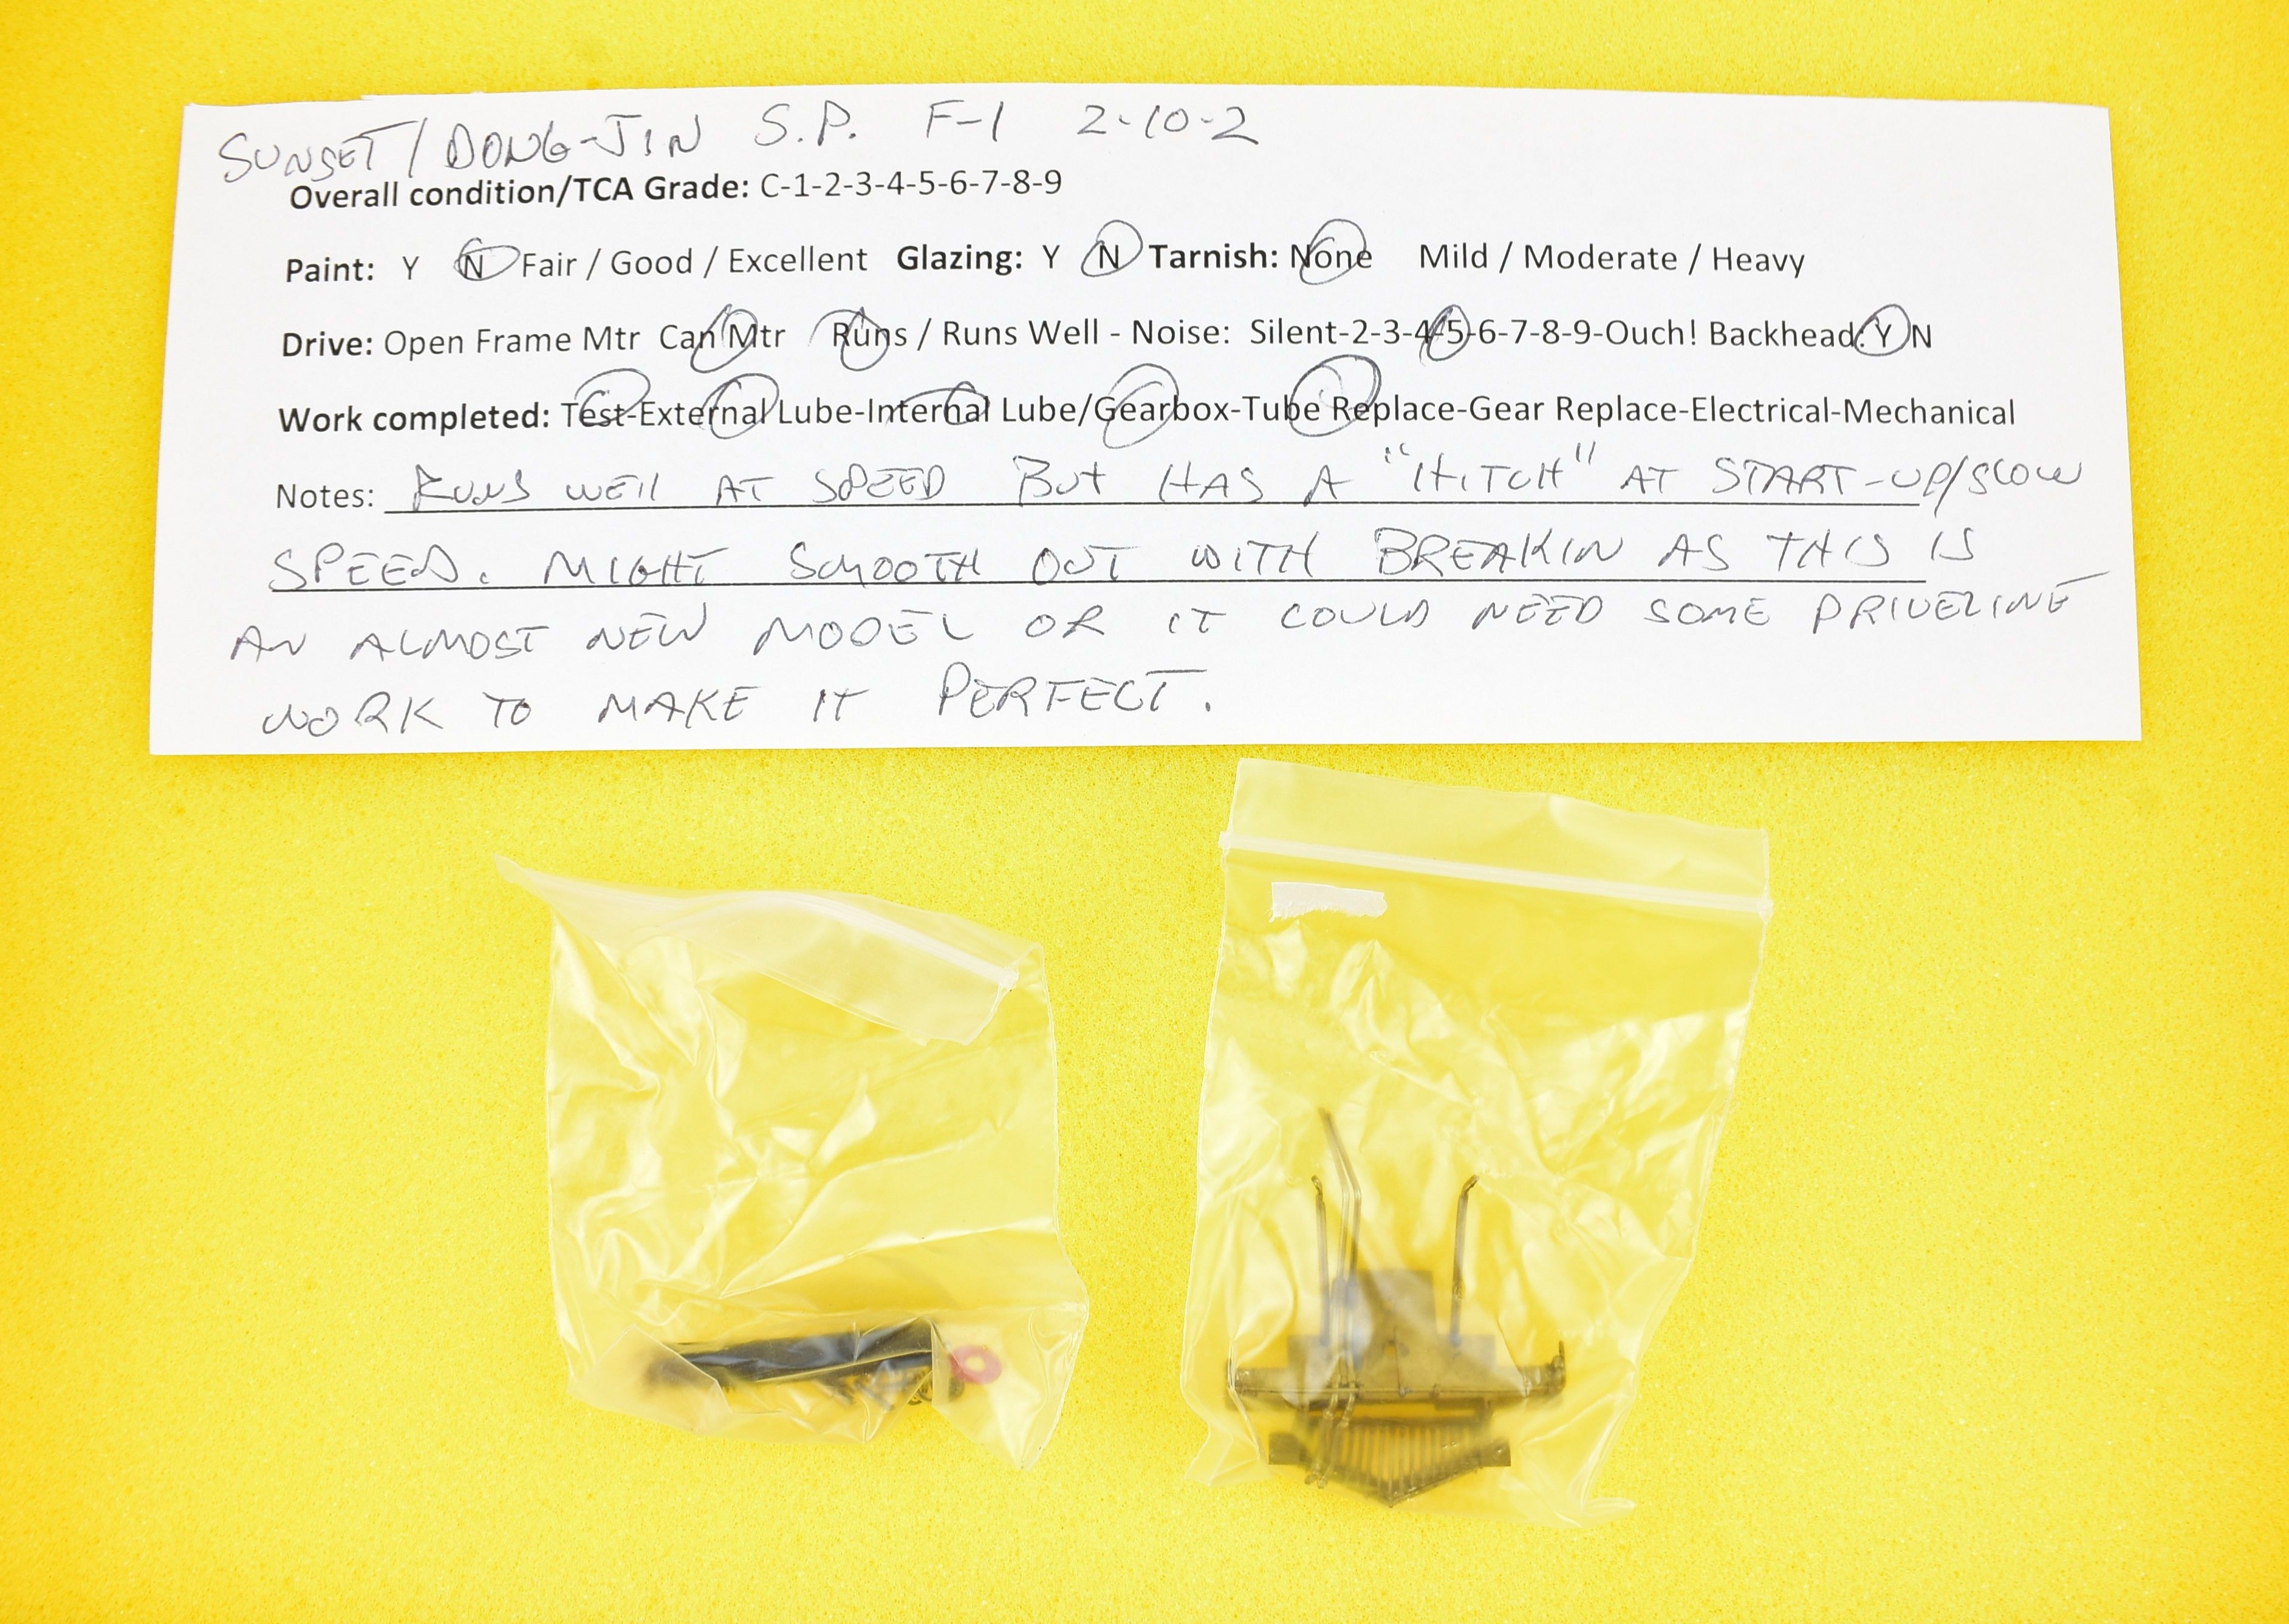 SUNSET/DONG-JIN S.P. F-1 2-10-2
Overall condition/TCA Grade: C-1-2-3-4-5-6-7-8-9
Paint: Y N Fair / Good / Excellent Glazing: Y N Tarnish: None Mild / Moderate / Heavy
Drive: Open Frame Mtr Can Mtr Runs / Runs Well - Noise: Silent-2-3-4-5-6-7-8-9-Ouch! Backhead: Y N
Work completed: Test-External Lube-Internal Lube/Gearbox-Tube Replace-Gear Replace-Electrical-Mechanical
Notes: RUNS WELL AT SPEED BUT HAS A "HITCH" AT START-UP/SLOW
SPEED. MIGHT SMOOTH OUT WITH BREAKIN AS THIS IS
AN ALMOST NEW MODEL OR IT COULD NEED SOME DRIVELINE
WORK TO MAKE IT PERFECT.